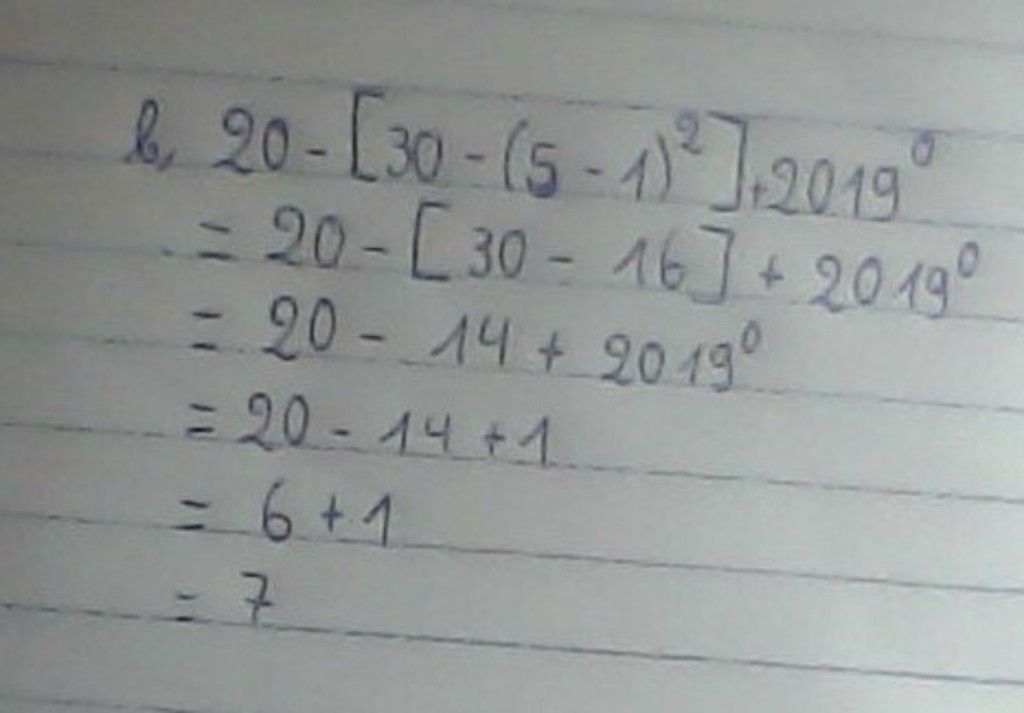 b, 20 - [30 - (5 - 1)²] + 2019⁰
= 20 - [30 - 16] + 2019⁰
= 20 - 14 + 2019⁰
= 20 - 14 + 1
= 6 + 1
= 7